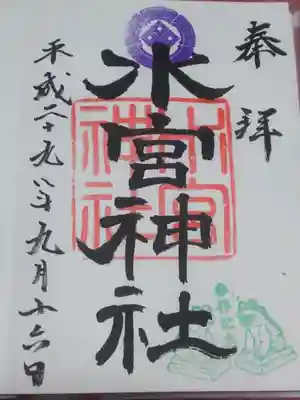 奉拝
水宮神社
水宮神社
平成二十九年九月十六日